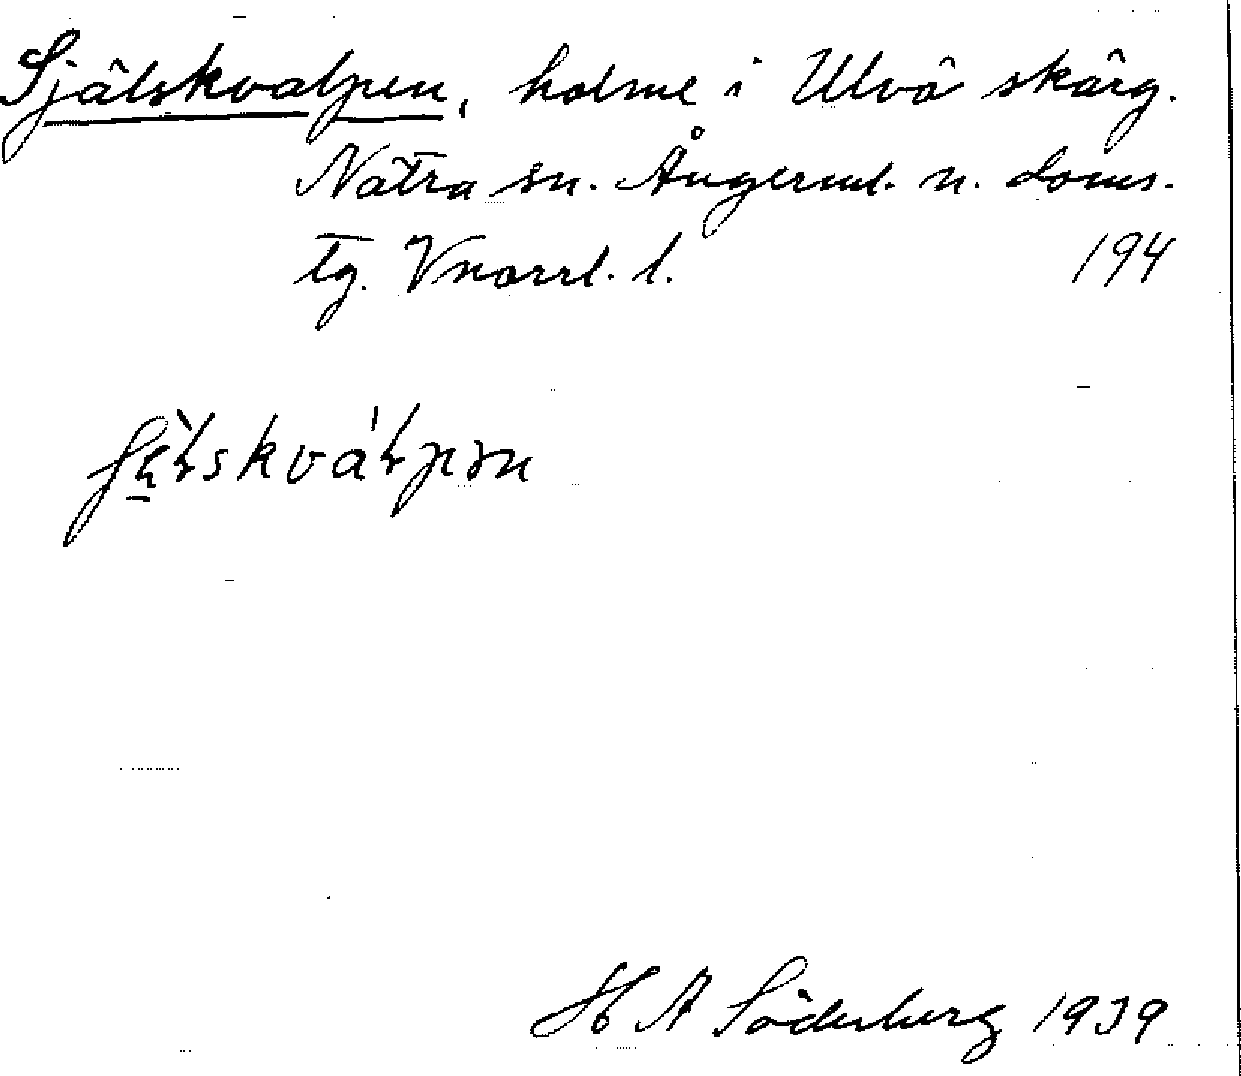 Själskvalpen, holme i Ulvö skärg.
Nätra sn. Ångerml. n. doms.
tg. Vnorrl. l. 194
H A Söderberg 1939